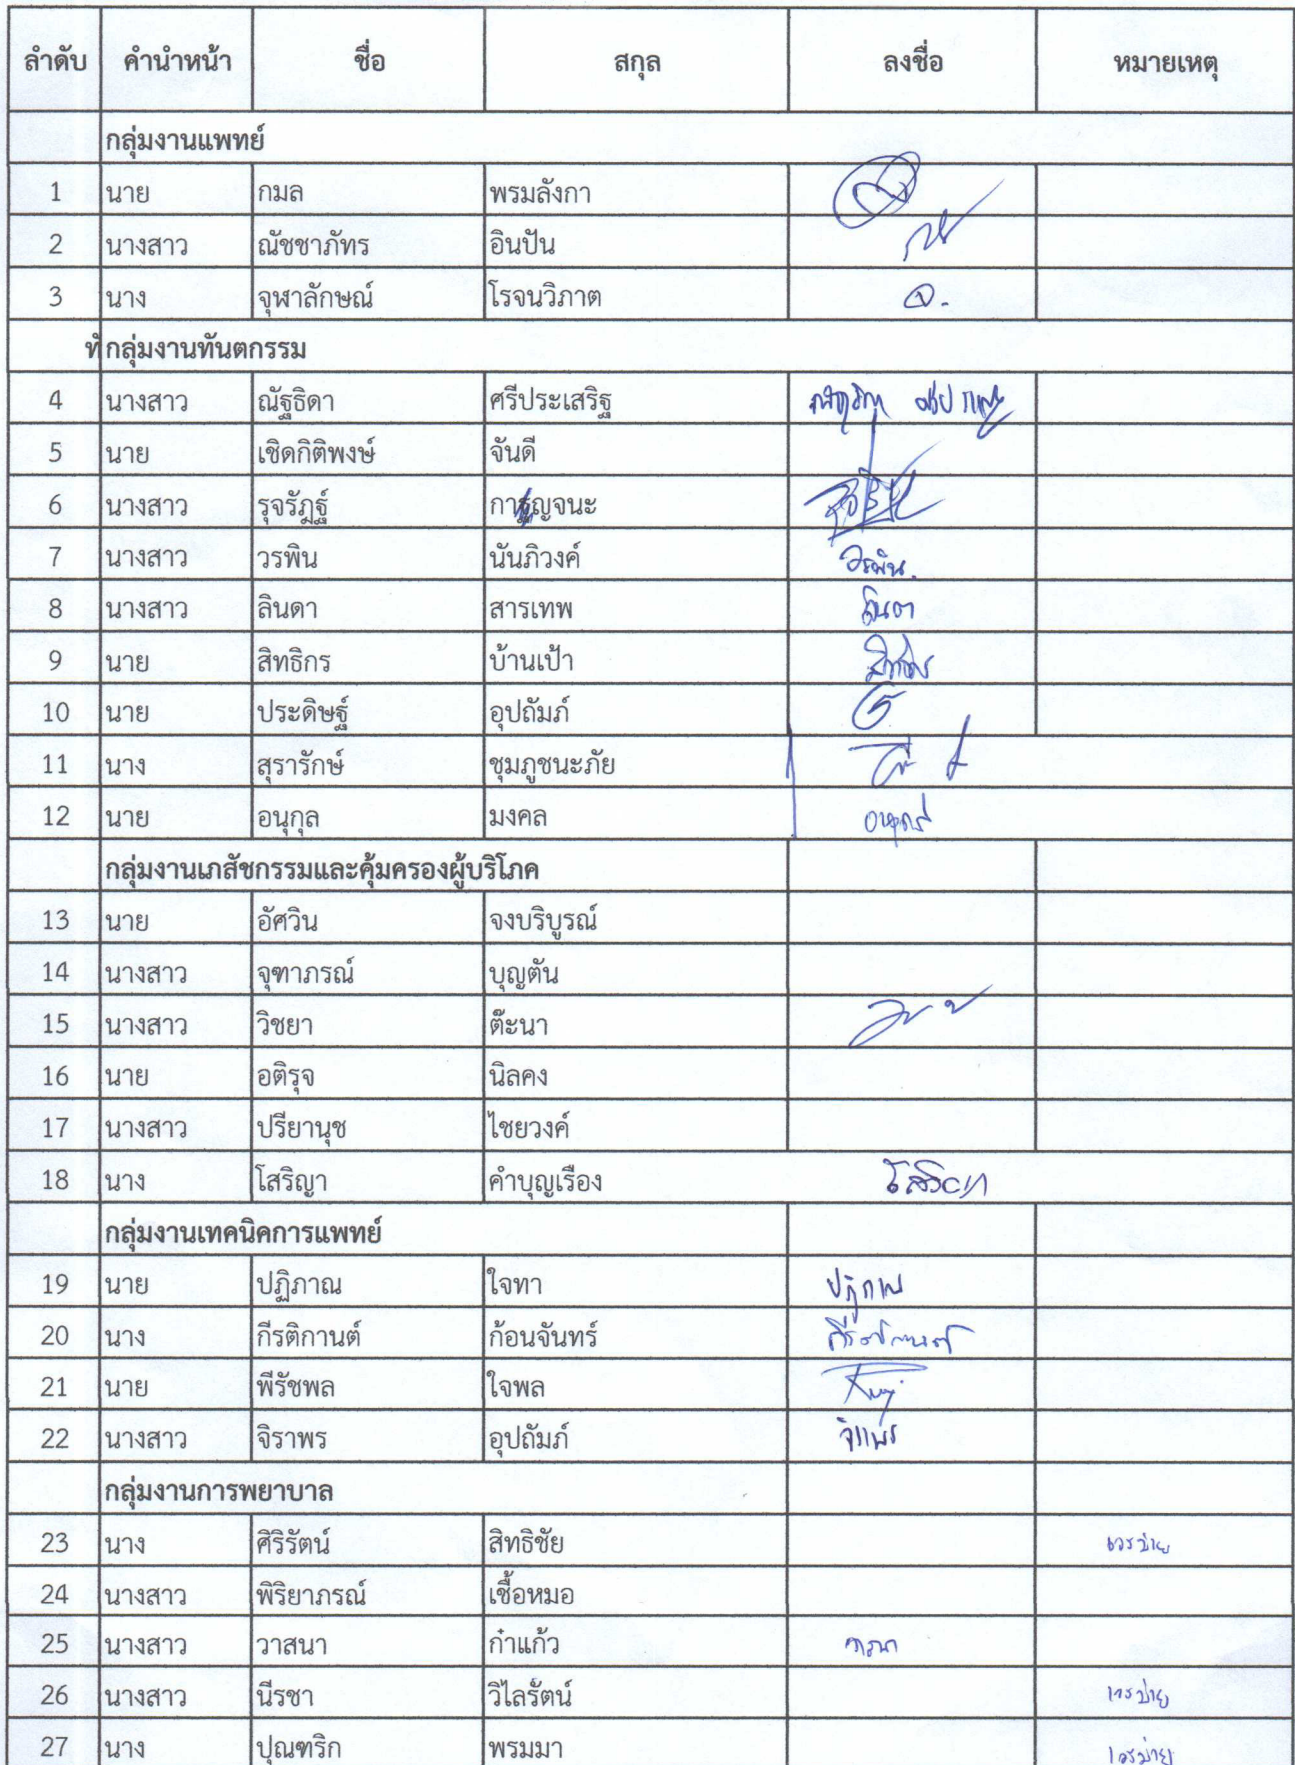 ลำดับ คำนำหน้า ชื่อ สกุล ลงชื่อ หมายเหตุ
กลุ่มงานแพทย์
1 นาย กมล พรมลังกา
2 นางสาว ณัชชาภัทร อินปัน
3 นาง จุฬาลักษณ์ โรจนวิภาต จ.
ทั กลุ่มงานทันตกรรม
4 นางสาว ณัฐธิดา ศรีประเสริฐ
5 นาย เชิดกิติพงษ์ จันดี
6 นางสาว รุจรัฏฐ์ กาญจนะ
7 นางสาว วรพิน นันภิวงค์ วรพิน.
8 นางสาว ลินดา สารเทพ ลินดา
9 นาย สิทธิกร บ้านเป้า สิทธิกร
10 นาย ประดิษฐ์ อุปถัมภ์
11 นาง สุรารักษ์ ชุมภูชนะภัย
12 นาย อนุกุล มงคล
กลุ่มงานเภสัชกรรมและคุ้มครองผู้บริโภค
13 นาย อัศวิน จงบริบูรณ์
14 นางสาว จุฑาภรณ์ บุญตัน
15 นางสาว วิชยา ต๊ะนา
16 นาย อติรุจ นิลคง
17 นางสาว ปรียานุช ไชยวงค์
18 นาง โสริญา คำบุญเรือง โสริญา
กลุ่มงานเทคนิคการแพทย์
19 นาย ปฏิภาณ ใจทา ปฏิภาณ
20 นาง กีรติกานต์ ก้อนจันทร์ กีรติกานต์
21 นาย พีรัชพล ใจพล
22 นางสาว จิราพร อุปถัมภ์ จิราพร
กลุ่มงานการพยาบาล
23 นาง ศิริรัตน์ สิทธิชัย เวรบ่าย
24 นางสาว พิริยาภรณ์ เชื้อหมอ
25 นางสาว วาสนา ก๋าแก้ว วาสนา
26 นางสาว นีรชา วิไลรัตน์ เวรบ่าย
27 นาง ปุณฑริก พรมมา เวรบ่าย